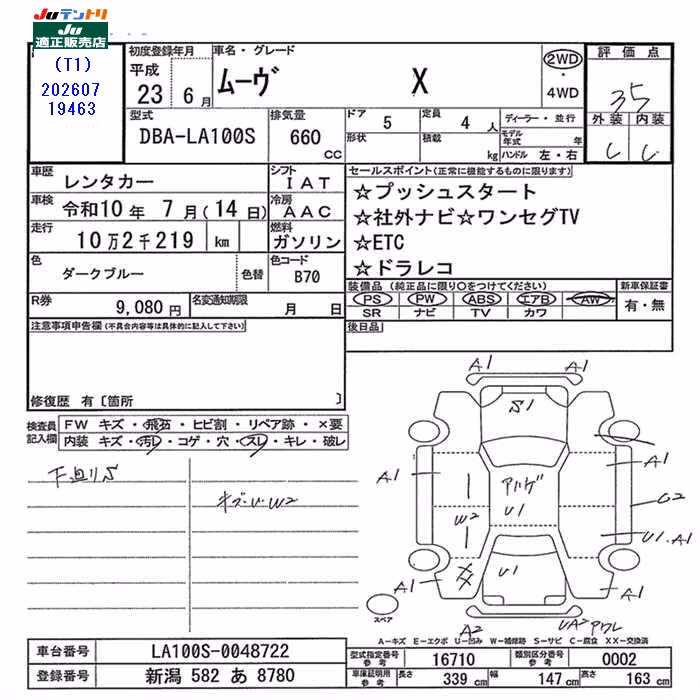 Juテントリ
Ju適正販売店
(T1)
202607
19463
初度登録年月
平成
23 6月
車名・グレード
ムーヴ X
2WD
・
4WD
評価点
3.5
外装 内装
C C
型式
DBA-LA100S
排気量
660
CC
ドア 5
定員 4 人
形状
積載 kg
ディーラー・並行
モデル年式 年
ハンドル 左・右
車歴 レンタカー
シフト IAT
車検 令和10年 7月(14日)
冷房 AAC
走行 10万2千219 km
燃料 ガソリン
色 ダークブルー 色替
色コード B70
R券 9,080円
名変通知期限 月 日
セールスポイント(正常に機能するものに限ります)
☆プッシュスタート
☆社外ナビ☆ワンセグTV
☆ETC
☆ドラレコ
装備品 (純正品に限り〇をつけてください)
新車保証書
PS PW ABS エアB AW
有・無
SR ナビ TV カワ
後日品
注意事項申告欄(不具合内容等は具体的に記入して下さい)
修復歴 有〔箇所 〕
検査員記入欄
FW キズ・飛石・ヒビ割・リペア跡・×要
内装 キズ・汚レ・コゲ・穴・スレ・キレ・破レ
下廻りS
キズ・U・W2
A1 A1
S1
A1 A1
アハゲ
U1
W2
G2
U1.A1
U1
A1 A1
A2 UA2 アワレ
スペア
A-キズ E-エクボ U-凹み W-補修跡 S-サビ C-腐食 XX-交換済
車台番号 LA100S-0048722
登録番号 新潟 582 あ 8780
型式指定番号 参考 16710
類別区分番号 参考 0002
車庫証明用 参考
長さ 339 cm
幅 147 cm
高さ 163 cm